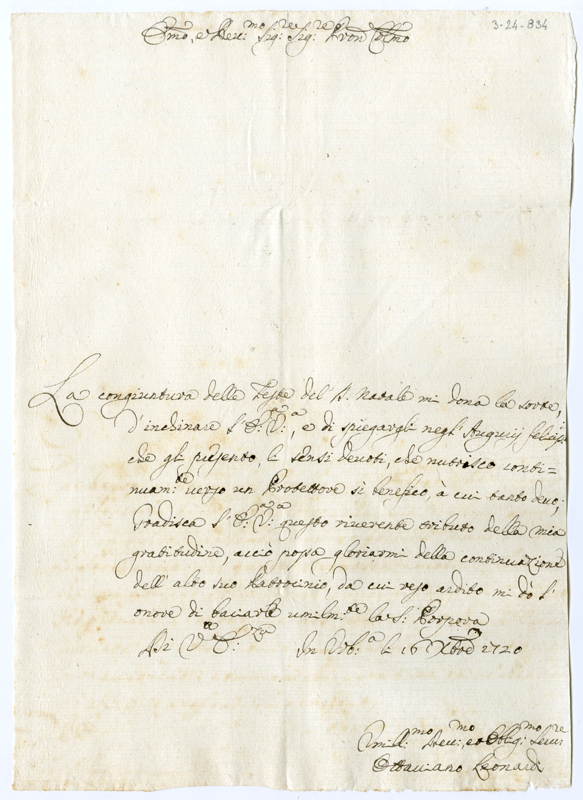 3-24-834
Emo, e Rev:mo Sig:re Sig:re Pron Colmo
La congiuntura delle Feste del S. Natale mi dona la sorte,
d'inchinare l'E:V:a, e di spiegargli negl'Augurij felici,
che gli presento, li sensi devoti, che nutrisco conti=
nuam:te verso un Protettore sì benefico, à cui tanto devo;
Gradisca l'E:V:a questo riverente tributo della mia
gratitudine, acciò possa gloriarmi della continuazione
dell'alto suo Patrocinio, da cui reso ardito mi dò l'
onore di baciarle umilm:te la S: Porpora
Di V:E: In Urb:o li 16 Xbre 1720
Umill:mo Dev:mo et Oblig:mo Serv:re
Ottaviano Leonardi